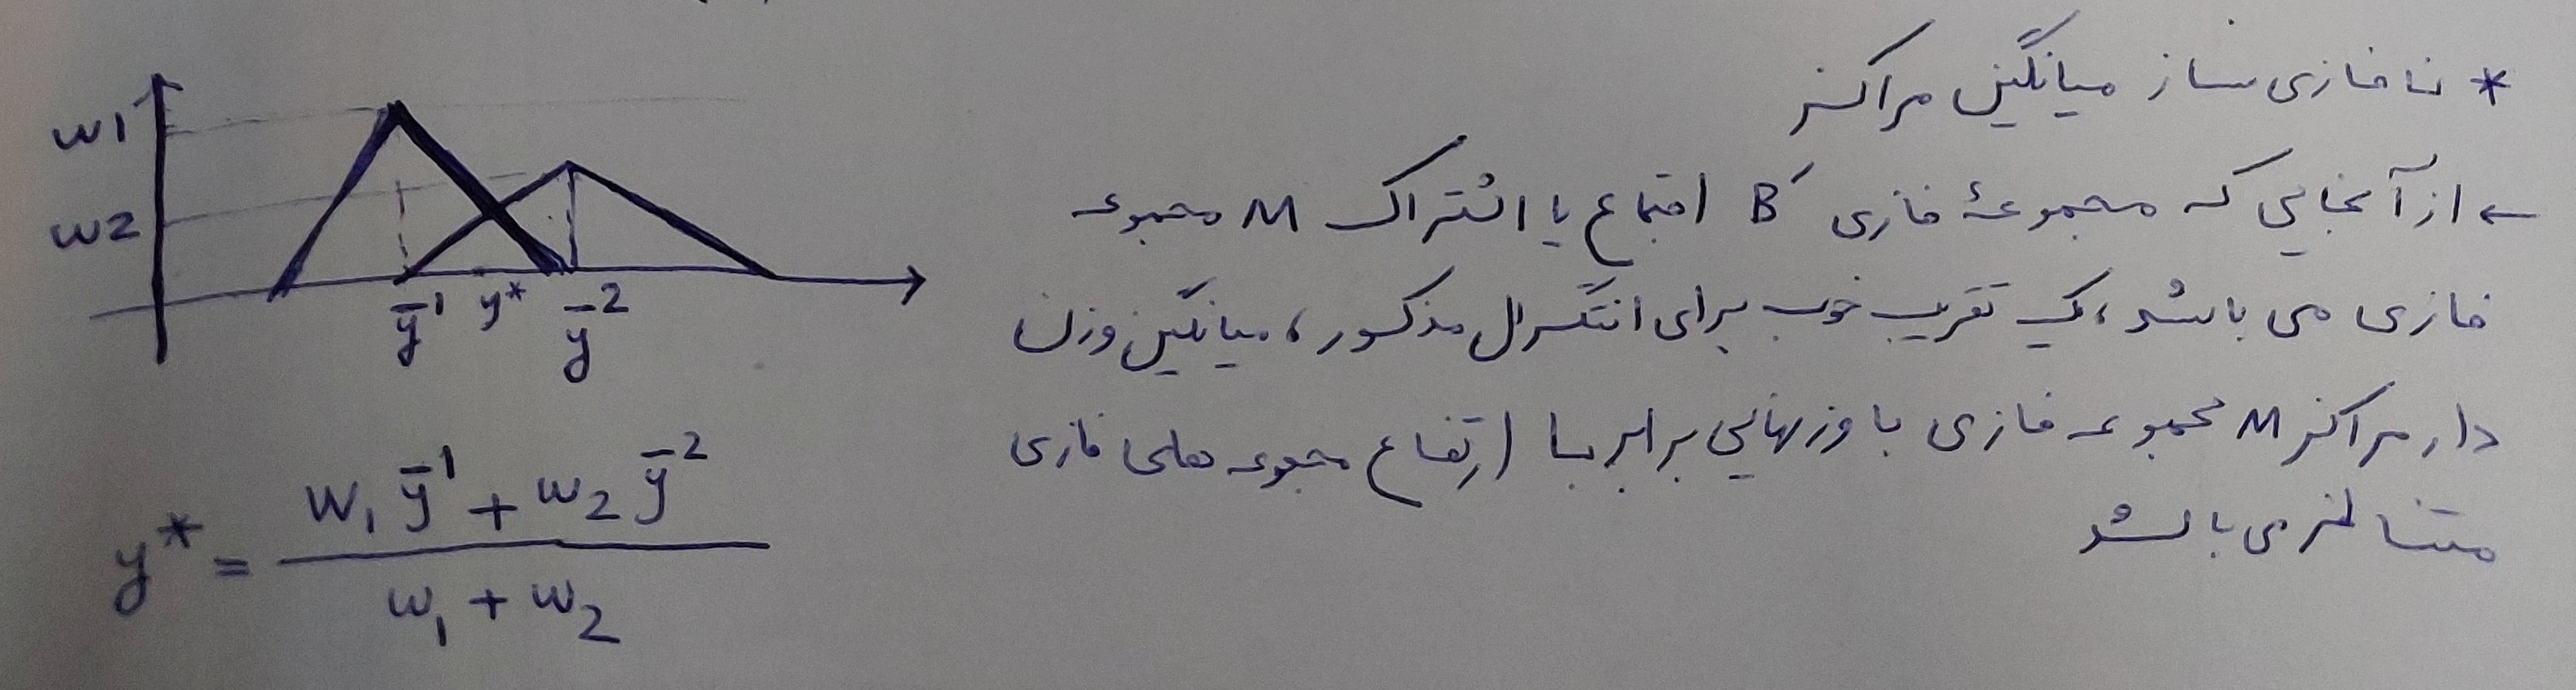 * نافازی ساز میانگین مراکز
← از آنجایی که مجموعهٔ فازی B′ اجتماع یا اشتراک M مجموعه
فازی می باشد، یک تقریب خوب برای انتگرال مذکور، میانگین وزن
دار مراکز M مجموعه فازی با وزنهایی برابر با ارتفاع مجموعه های فازی
متناظر می باشد
w1
w2
ȳ¹ y* ȳ²
y* = (w₁ ȳ¹ + w₂ ȳ²) / (w₁ + w₂)